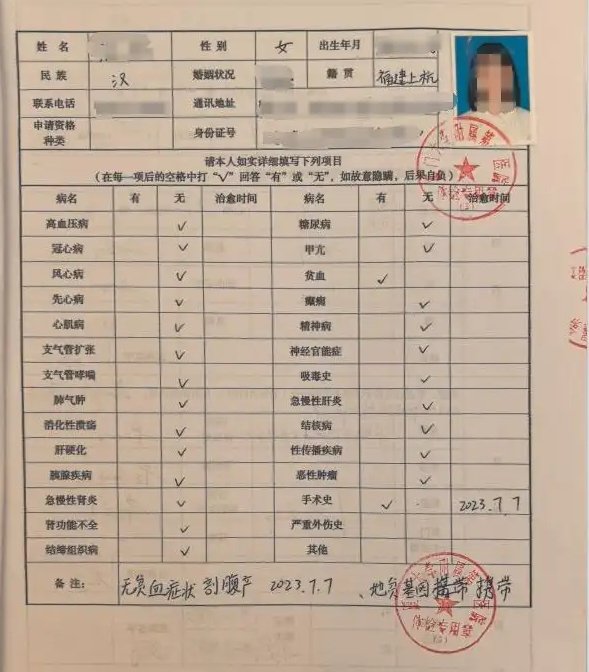 姓 名 性 别 女 出生年月
民 族 汉 婚姻状况 籍 贯 福建上杭
联系电话 通讯地址
申请资格种类 身份证号
请本人如实详细填写下列项目
（在每一项后的空格中打“√”回答“有”或“无”，如故意隐瞒，后果自负）
病名 有 无 治愈时间 病名 有 无 治愈时间
高血压病 √ 糖尿病 √
冠心病 √ 甲亢 √
风心病 √ 贫血 √
先心病 √ 癫痫 √
心肌病 √ 精神病 √
支气管扩张 √ 神经官能症 √
支气管哮喘 √ 吸毒史 √
肺气肿 √ 急慢性肝炎 √
消化性溃疡 √ 结核病 √
肝硬化 √ 性传播疾病 √
胰腺疾病 √ 恶性肿瘤 √
急慢性肾炎 √ 手术史 √ 2023.7.7
肾功能不全 √ 严重外伤史
结缔组织病 √ 其他
备 注： 无贫血症状 剖腹产 2023.7.7 、地贫基因携带 携带